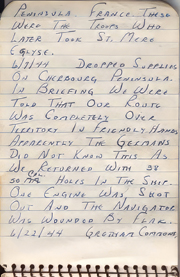 PENINSULA FRANCE THESE
WERE THE TROOPS WHO
LATER TOOK ST. MERE
EGLISE.
6/7/44 DROPPED SUPPLIES
ON CHERBOURG PENINSULA.
IN BRIEFING WE WERE
TOLD THAT OUR ROUTE
WAS COMPLETELY OVER
TERRITORY IN FRIENDLY HANDS
APPARENTLY THE GERMANS
DID NOT KNOW THIS AS
WE RETURNED WITH 38
HOLES IN THE SHIP.
ONE ENGINE WAS SHOT
OUT AND THE NAVIGATOR
WAS WOUNDED BY FLAK.
6/22/44 GROTHAM COMMONS,